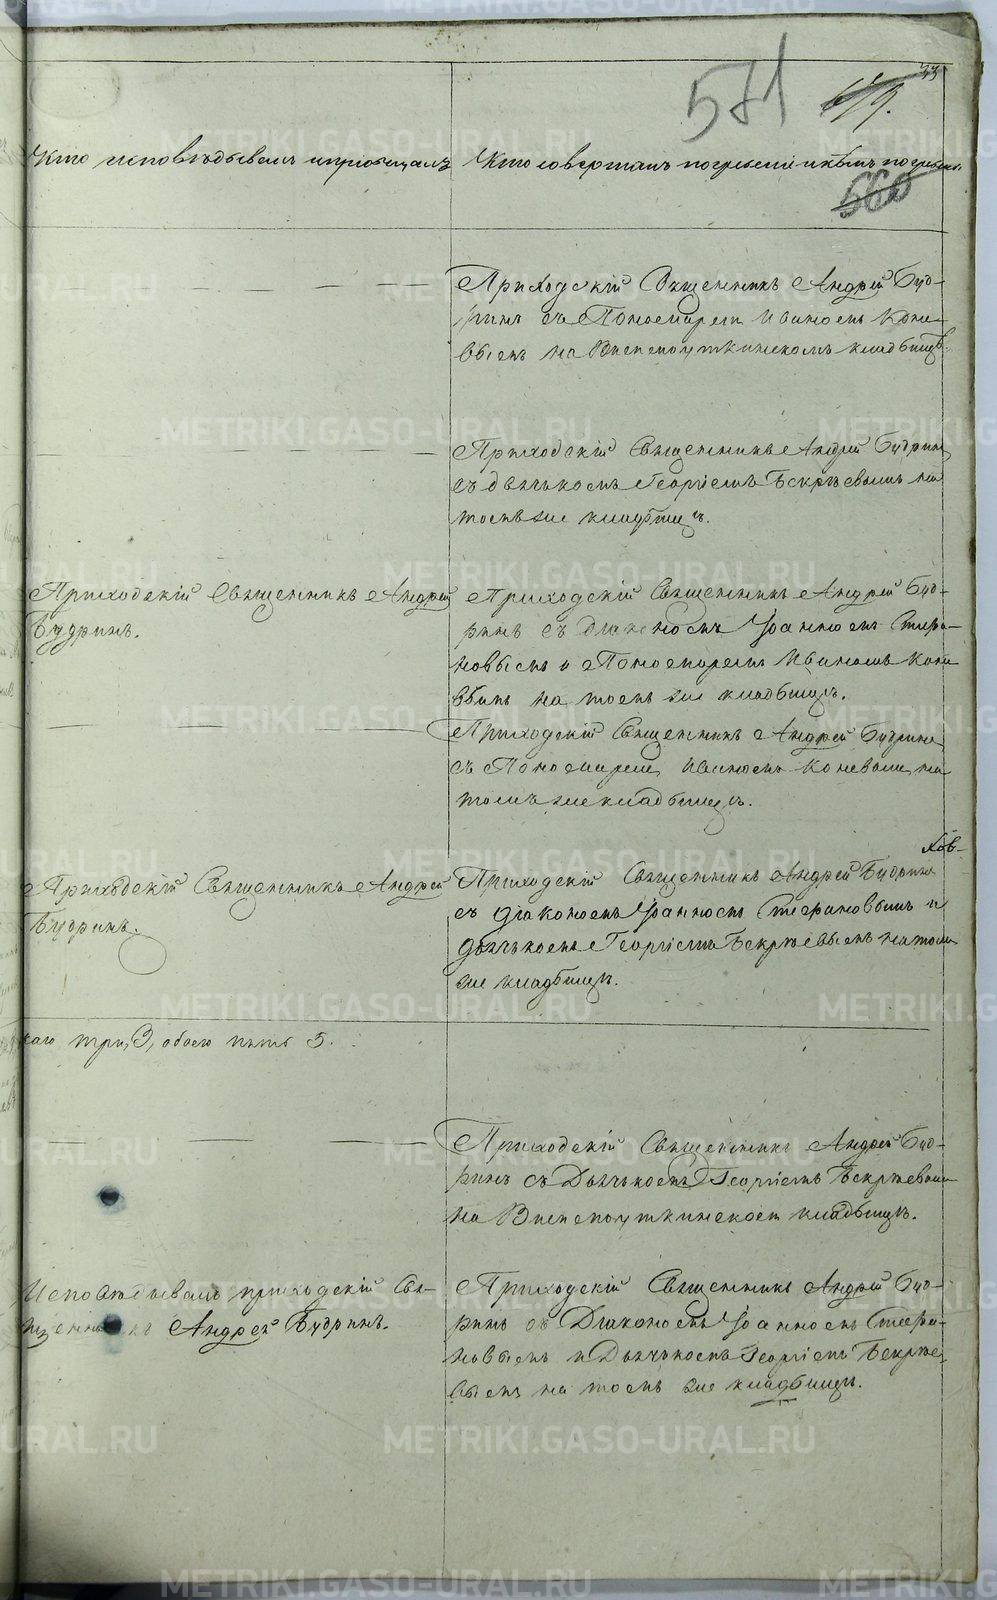 33
581
619.
Кто исповѣдывалъ и пріобщалъ
Кто совершалъ погребеніе и гдѣ погребены
560
Приходскій Священникъ Андрей Буд-
ринъ съ Пономаремъ Иваномъ Коне-
вымъ на Висимоуткинскомъ кладбищѣ.
Приходскій Священникъ Андрей Будринъ
съ дьячькомъ Георгіемъ Бекрѣевымъ на
томъ же кладбищѣ.
Приходскій Священникъ Андрей
Будринъ.
Приходскій Священникъ Андрей Буд-
ринъ съ Діакономъ Іоанномъ Стефа-
новымъ и Пономаремъ Иваномъ Коне
вымъ на томъ же кладбищѣ.
Приходскій Священникъ Андрей Будринъ
съ Пономаремъ Иваномъ Коневымъ на
томъ же кладбищѣ.
Приходскій Священникъ Андрей
Будринъ.
Приходскій Священникъ Андрей Будринъ
съ діакономъ Іоанномъ Стефановымъ и
дьячькомъ Георгіемъ Бекрѣевымъ на томъ
же кладбищѣ.
каго три, 3, обоего пять 5.
Приходскій Священникъ Андрей Буд-
ринъ съ Дьячькомъ Георгіемъ Бекрѣевымъ
на Висимоуткинскомъ кладбищѣ.
Исповѣдывалъ приходскій Свя-
щенникъ Андрей Будринъ.
Приходскій Священникъ Андрей Буд-
ринъ съ Діакономъ Іоанномъ Стефа-
новымъ и Дьячькомъ Георгіемъ Бекрѣе-
вымъ на томъ же кладбищѣ.
METRIKI.GASO-URAL.RU